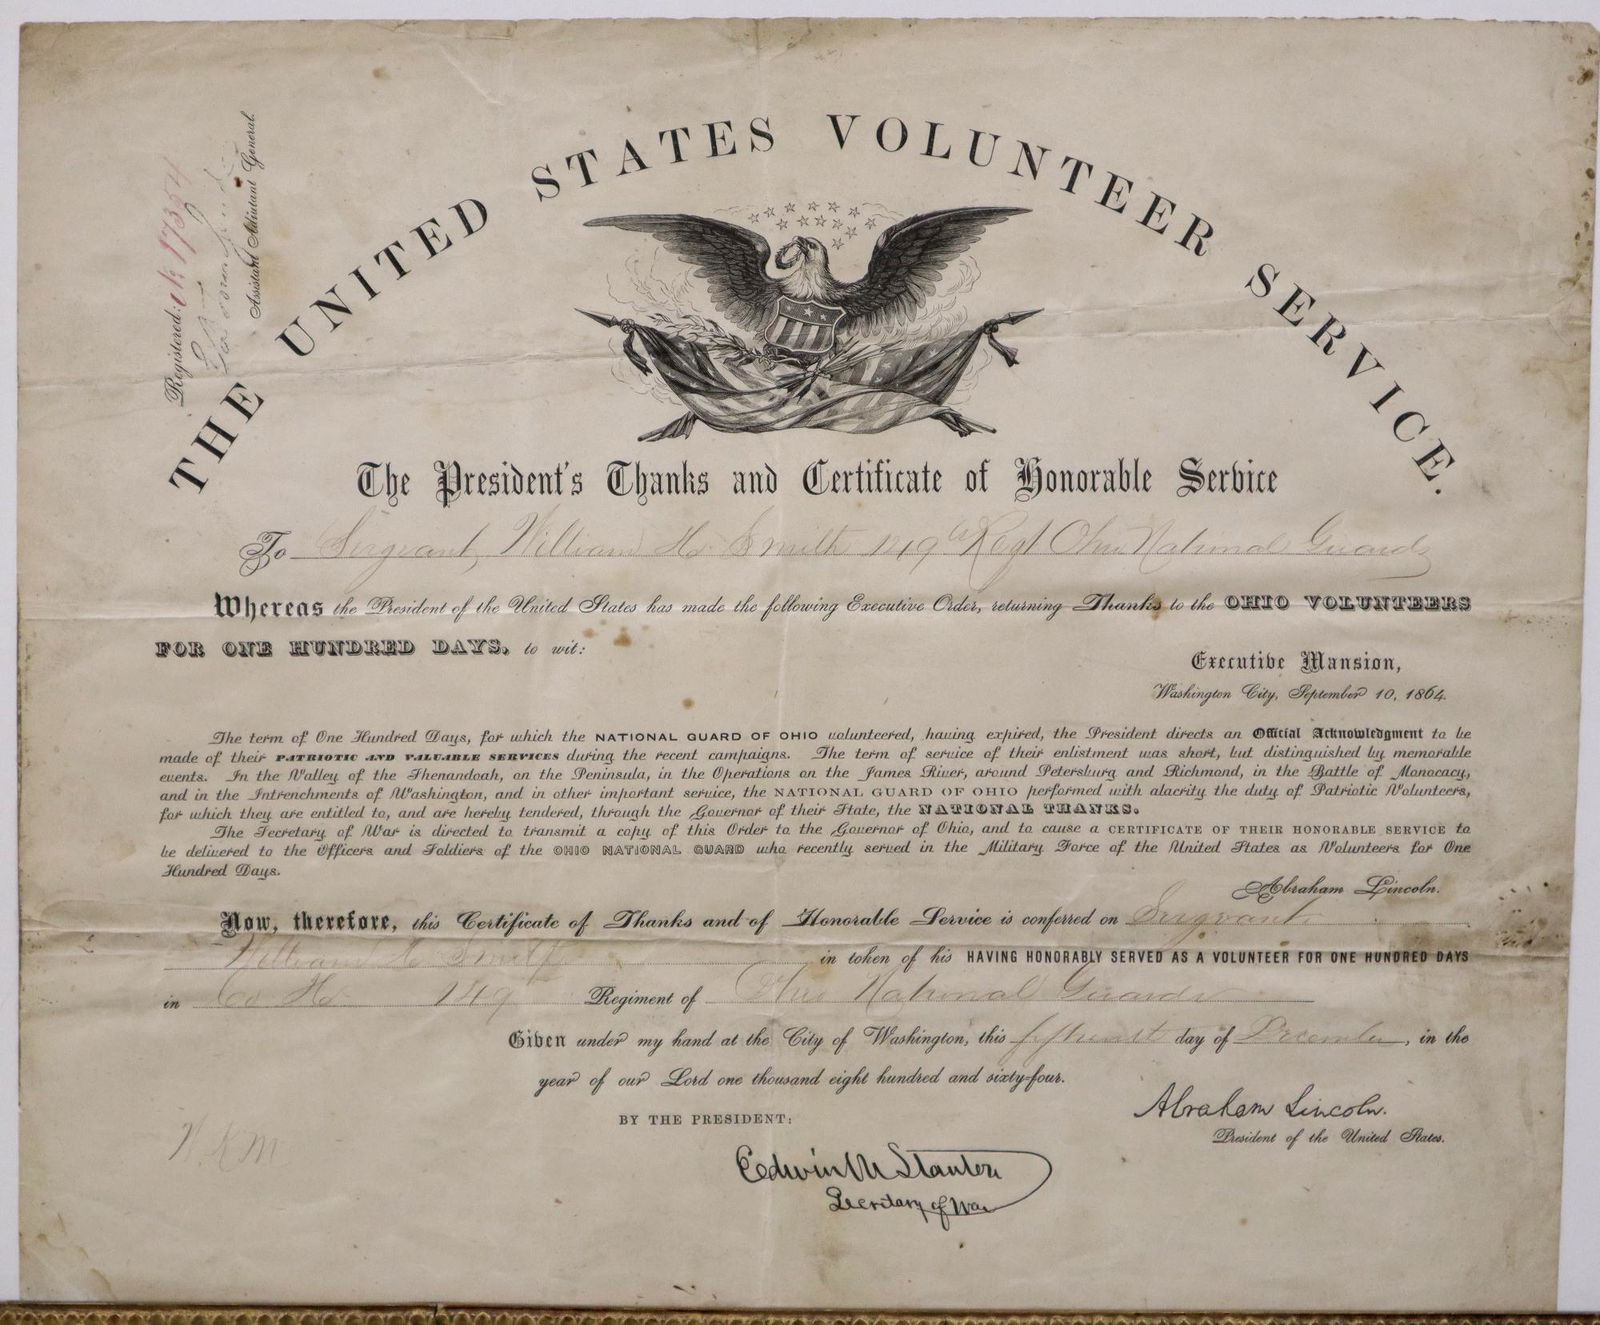 THE UNITED STATES VOLUNTEER SERVICE.
Registered: No 17354
Assistant Adjutant General.
The President's Thanks and Certificate of Honorable Service
To Sergeant, William H. Smith 149th Regt Ohio National Guard
Whereas the President of the United States has made the following Executive Order, returning Thanks to the OHIO VOLUNTEERS
FOR ONE HUNDRED DAYS, to wit:
Executive Mansion,
Washington City, September 10, 1864.
The term of One Hundred Days, for which the NATIONAL GUARD OF OHIO volunteered, having expired, the President directs an Official Acknowledgment to be
made of their PATRIOTIC AND VALUABLE SERVICES during the recent campaigns. The term of service of their enlistment was short, but distinguished by memorable
events. In the Valley of the Shenandoah, on the Peninsula, in the Operations on the James River, around Petersburg and Richmond, in the Battle of Monocacy,
and in the Intrenchments of Washington, and in other important service, the NATIONAL GUARD OF OHIO performed with alacrity the duty of Patriotic Volunteers,
for which they are entitled to, and are hereby tendered, through the Governor of their State, the NATIONAL THANKS.
The Secretary of War is directed to transmit a copy of this Order to the Governor of Ohio, and to cause a CERTIFICATE OF THEIR HONORABLE SERVICE to
be delivered to the Officers and Soldiers of the OHIO NATIONAL GUARD who recently served in the Military Force of the United States as Volunteers for One
Hundred Days.
Abraham Lincoln.
Now, therefore, this Certificate of Thanks and of Honorable Service is conferred on Sergeant
William H. Smith in token of his HAVING HONORABLY SERVED AS A VOLUNTEER FOR ONE HUNDRED DAYS
in Co H. 149th Regiment of Ohio National Guards
Given under my hand at the City of Washington, this fifteenth day of December, in the
year of our Lord one thousand eight hundred and sixty-four.
BY THE PRESIDENT:
Abraham Lincoln.
President of the United States.
Edwin M Stanton
Secretary of War